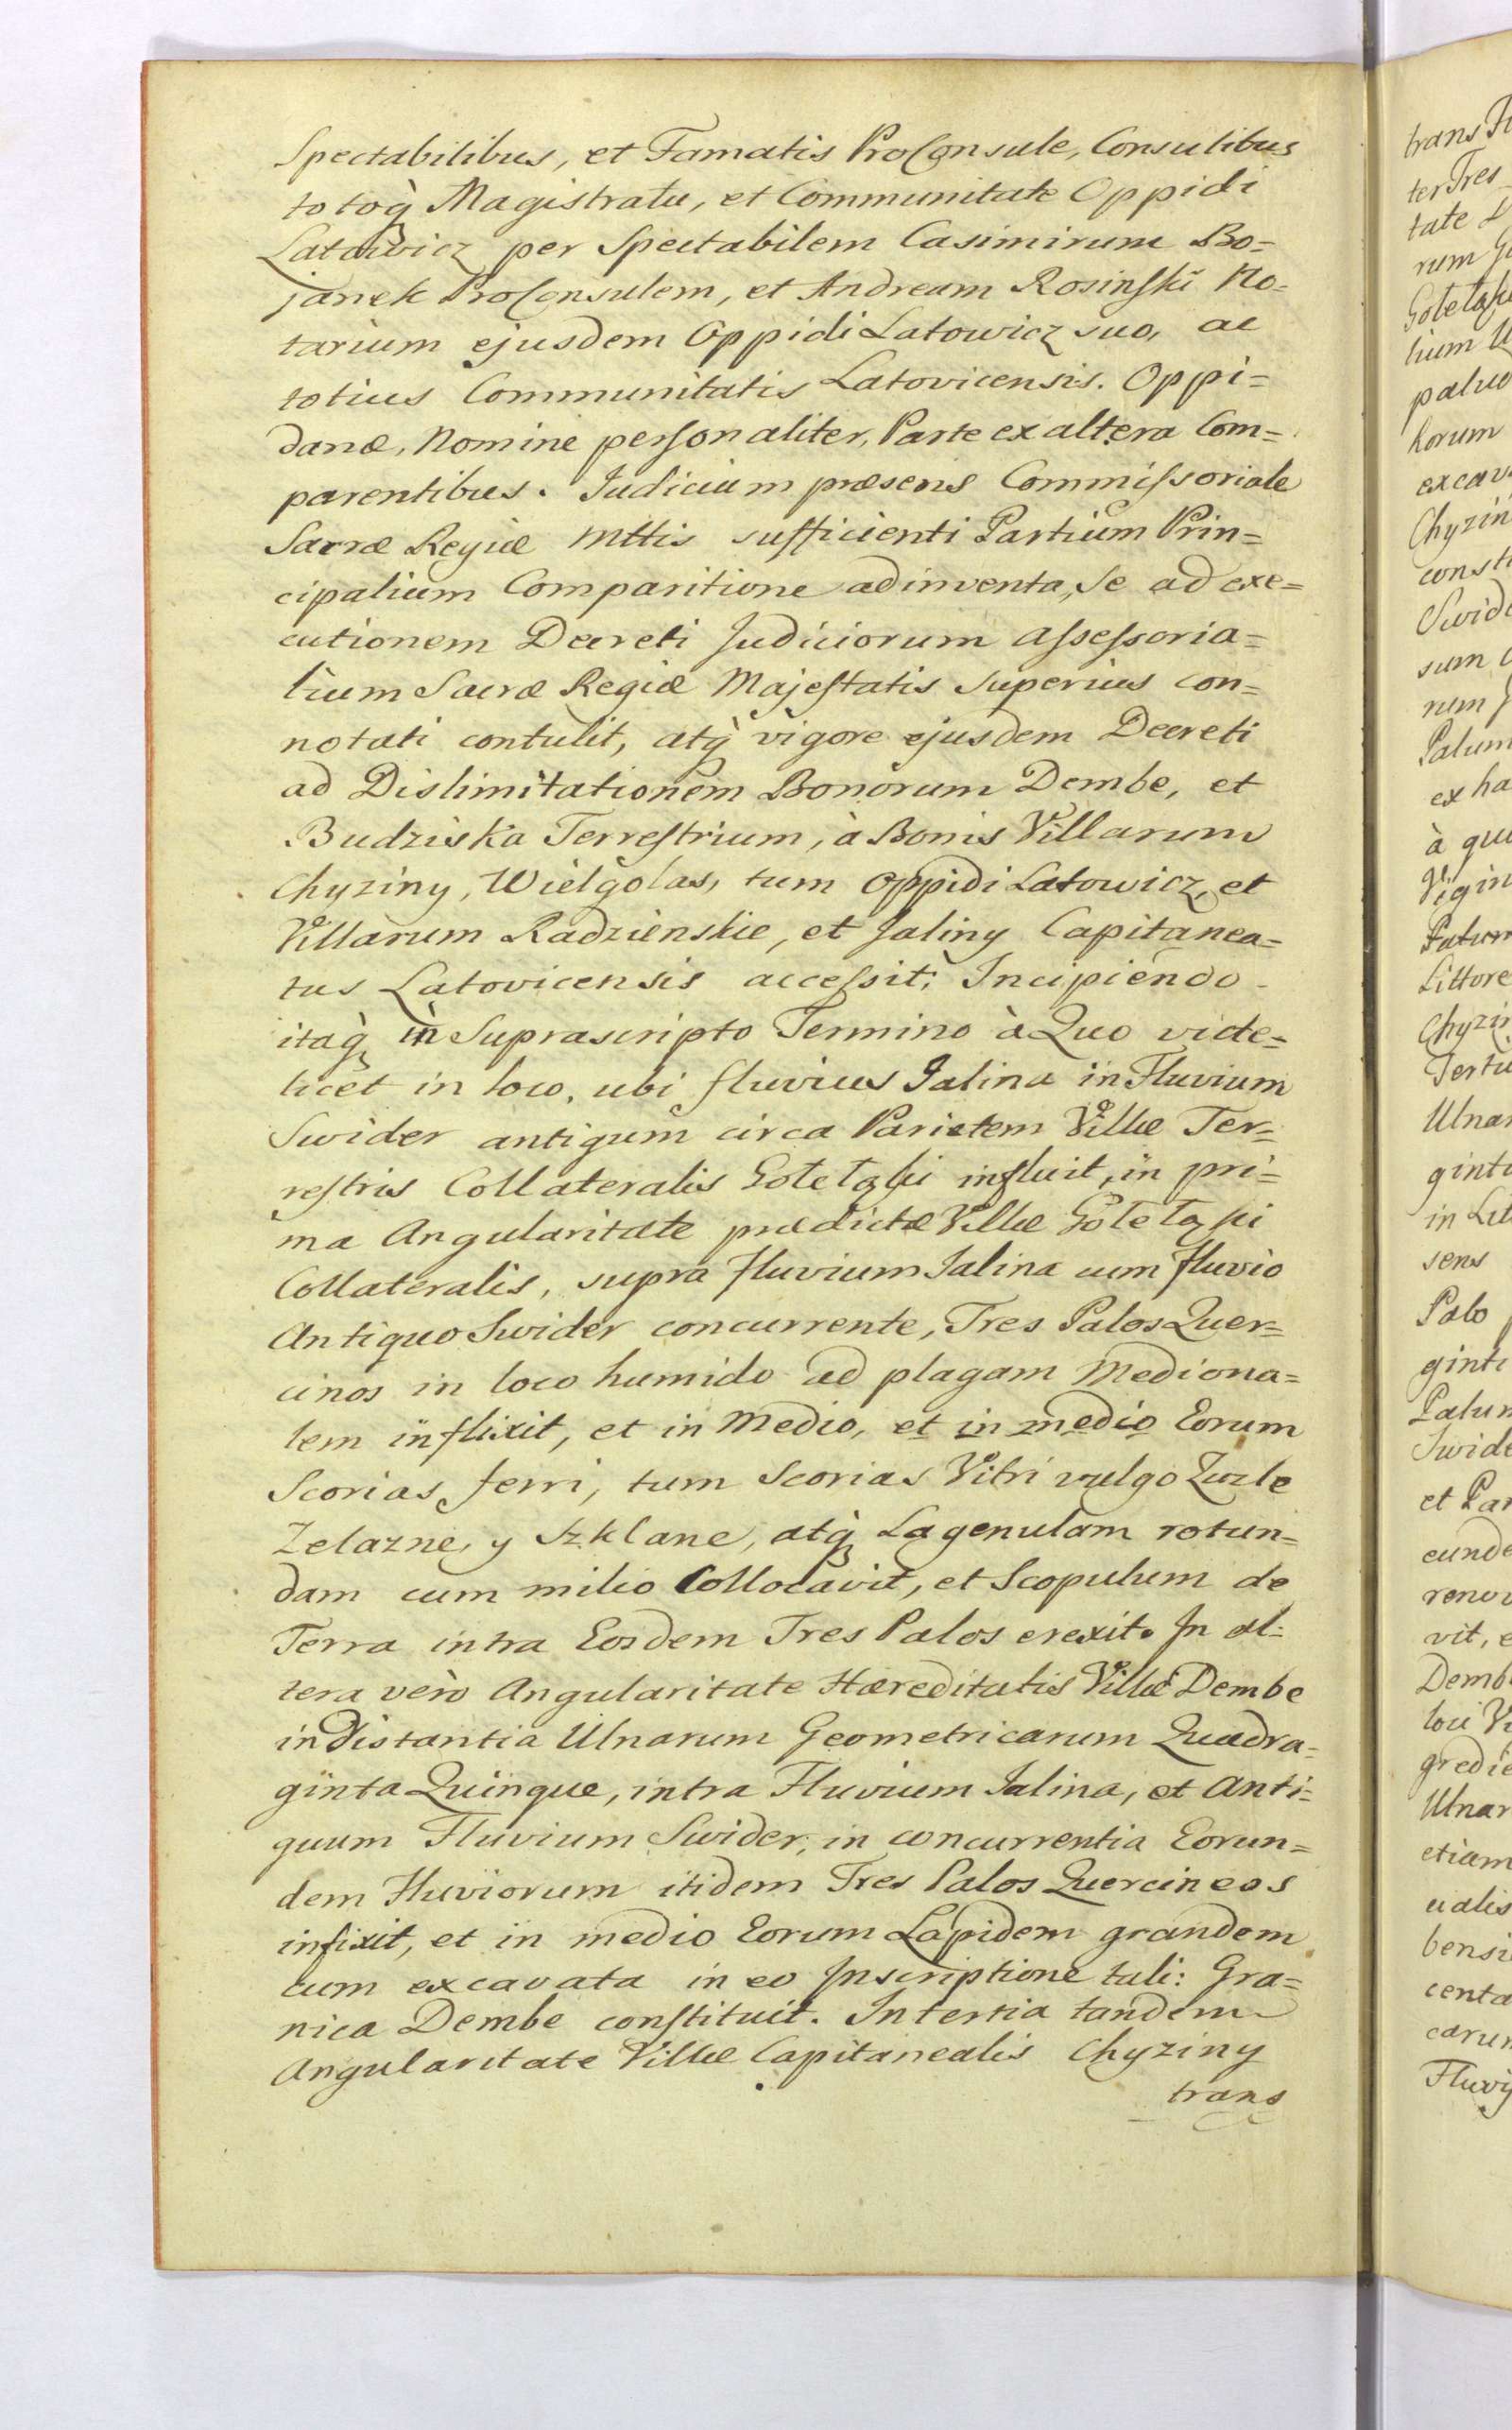 Spectabilibus, et Famatis ProConsule, Consulibus
totoq̀ Magistratu, et Communitate Oppidi
Latowicz per Spectabilem Casimirum Bo=
janek ProConsulem, et Andream Rosinski No=
tarium ejusdem Oppidi Latowicz suo, ac
totius Communitatis Latovicensis. Oppi=
danæ, Nomine personaliter, Parte ex altera Com=
parentibus. Judicium præsens Commissoriale
Sacræ Regiæ Mttis sufficienti Partium Prin=
cipalium Comparitione adinventa, se ad exe=
cutionem Decreti Judiciorum Assessoria=
lium Sacræ Regiæ Majestatis Superius con=
notati contulit, atq̀ vigore ejusdem Decreti
ad Dislimitationem Bonorum Dembe, et
Budziska Terrestrium, à Bonis Villarum
Chyziny, Wielgolas, tum Oppidi Latowicz, et
Villarum Radzienskie, et Jaliny Capitanea=
tus Latovicensis accessit; Incipiendo
itaq̀ in Suprascripto Termino à Quo vide=
licet in loco, ubi fluvius Jalina in Fluvium
Swider antiqum circa Parietem Villæ Ter=
restris Collateralis Gołełąki influit, in pri=
ma Angularitate prædictæ Villæ Gołełąki
Collateralis, supra fluvium Jalina cum fluvio
Antiquo Swider concurrente, Tres Palos Quer=
cinos in loco humido ad plagam Mediona=
lem inflixit, et in Medio, et in medio Eorum
Scorias ferri, tum Scorias Vitri vulgo Zuzle
Zelazne, y Szklane, atq̀ Lagenulam rotun=
dam cum milio Collocavit, et Scopulum de
Terra intra Eosdem Tres Palos erexit. In al=
tera verò Angularitate Hæreditatis Villæ Dembe
in Distantia Ulnarum Geometricarum Quadra=
ginta Quinque, intra Fluvium Jalina, et Anti=
quum Fluvium Swider, in concurrentia Eorun=
dem Fluviorum itidem Tres Palos Quercineos
infixit, et in medio Eorum Lapidem grandem
cum excavata in eo Inscriptione tali: Gra=
nica Dembe constituit. In tertia tandem
Angularitate Villæ Capitanealis Chyziny
trans
ter Tres
tate
rum
palud
horum
Chyzin
consti
sum
Palum
ex ha
à qu
Littore
Chyzin
Ulnar
in Lit
sens
Palo
ginti
Palum
Swide
et Par
eunde
renov
vit, e
Demb
loci
gredie
Ulnar
etiam
bensi
centa
carum